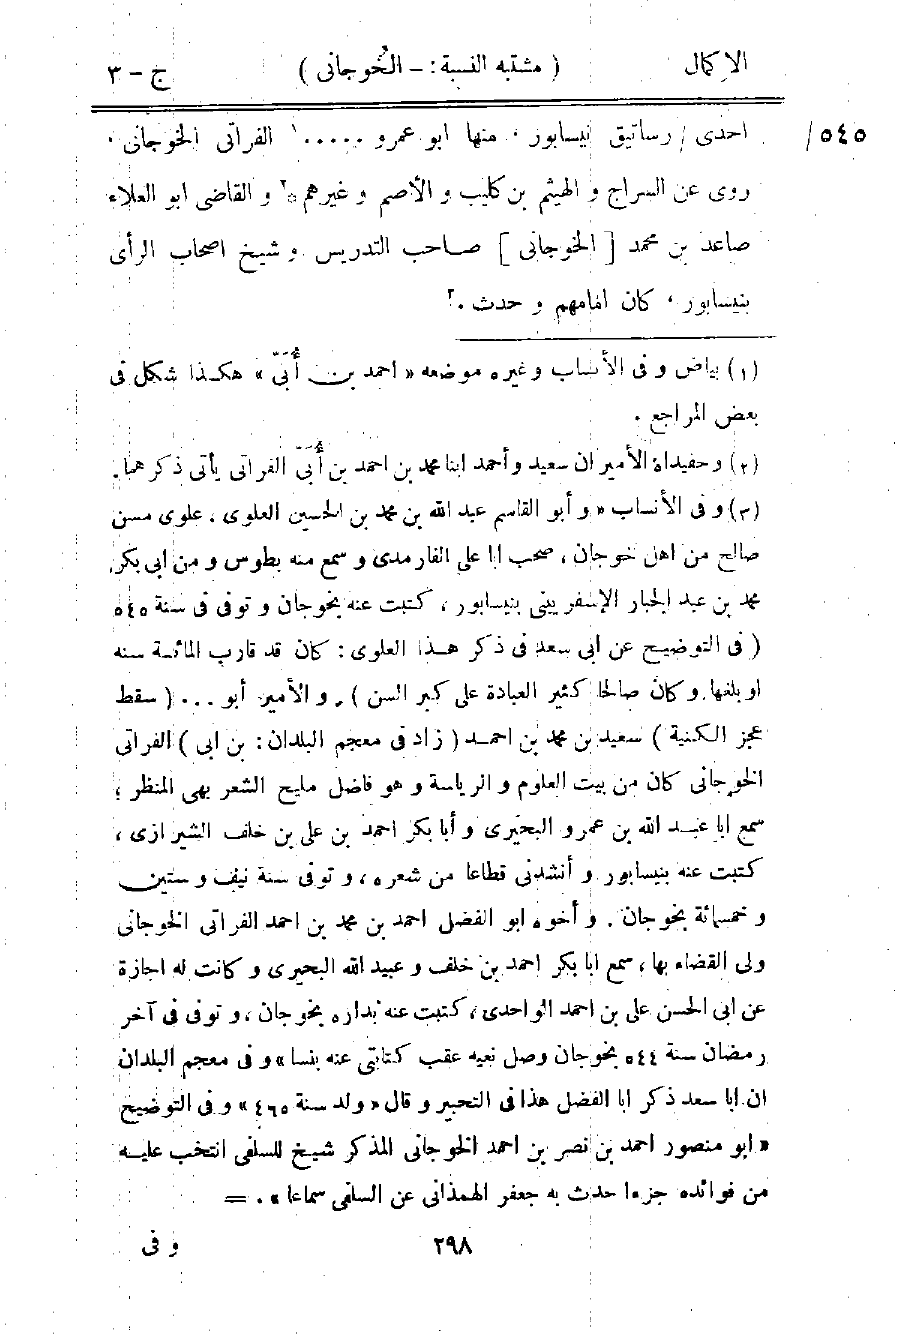 الاكمال ( مشتبه النسبة: - الخُوجانى ) ج - ٣
٥٤٥/ احدى / رساتيق نيسابور ، منها ابو عمرو ......١ الفراتى الخوجانى ،
روى عن السراج و الهيثم بن كليب و الأصم و غيرهم٢ ٥ و القاضى ابو العلاء
صاعد بن محمد [ الخوجانى ] صاحب التدريس و شيخ اصحاب الرأى
بنيسابور ، كان امامهم و حدث .٣
(١) بياض و فى الأنساب وغيره موضعه « احمد بن أُبَىّ » هكذا شكل فى
بعض المراجع .
(٢) و حفيداه الأميران سعيد و أحمد ابنا محمد بن احمد بن أُبَىّ الفراتى يأتى ذكرهما.
(٣) و فى الأنساب « و أبو القاسم عبد الله بن محمد بن الحسين العلوى . علوى مسن
صالح من اهل خوجان ، صحب ابا على الفارمدى و سمع منه بطوس و من ابى بكر
محمد بن عبد الجبار الإسفرييني بنيسابور ، كتبت عنه بخوجان و توفى فى سنة ٥٤٥
( فى التوضيح عن ابى سعد فى ذكر هذا العلوى : كان قد قارب المائة سنه
او بلغها و كان صالحا كثير العبادة على كبر السن ) . و الأمير أبو ... ( سقط
عجز الكنية ) سعيد بن محمد بن احمد ( زاد فى معجم البلدان : بن ابى ) الفراتى
الخوجانى كان من بيت العلوم و الرياسة و هو فاضل مليح الشعر بهى المنظر ؛
سمع ابا عبد الله بن عمرو البحيرى و أبا بكر احمد بن على بن خلف الشيرازى ،
كتبت عنه بنيسابور و أنشدنى قطاعا من شعره ، و توفى سنة نيف و ستين
و خمسمائة بخوجان . و أخوه ابو الفضل احمد بن محمد بن احمد الفراتى الخوجانى
ولى القضاء بها ، سمع ابا بكر احمد بن خلف و عبيد الله البحيرى و كانت له اجازة
عن ابى الحسن على بن احمد الواحدى ، كتبت عنه بداره بخوجان ، و توفى فى آخر
رمضان سنة ٥٤٤ بخوجان وصل نعيه عقب كتابتى عنه بنسا » و فى معجم البلدان
ان ابا سعد ذكر ابا الفضل هذا فى التحبير و قال « ولد سنة ٤٦٥ » و فى التوضيح
« ابو منصور احمد بن نصر بن احمد الخوجانى المذكر شيخ للسلفى انتخب عليه
من فوائده جزءا حدث به جعفر الهمذانى عن السلفى سماعا » . =
٢٩٨ و فى